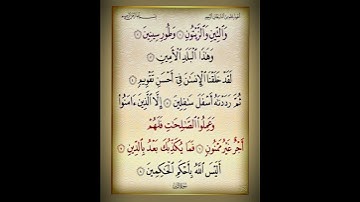 وَٱلتِّينِ وَٱلزَّيْتُونِ ۝ وَطُورِ سِينِينَ ۝
وَهَٰذَا ٱلْبَلَدِ ٱلْأَمِينِ ۝
لَقَدْ خَلَقْنَا ٱلْإِنسَٰنَ فِىٓ أَحْسَنِ تَقْوِيمٍ ۝
ثُمَّ رَدَدْنَٰهُ أَسْفَلَ سَٰفِلِينَ ۝ إِلَّا ٱلَّذِينَ ءَامَنُوا۟
وَعَمِلُوا۟ ٱلصَّٰلِحَٰتِ فَلَهُمْ
أَجْرٌ غَيْرُ مَمْنُونٍ ۝ فَمَا يُكَذِّبُكَ بَعْدُ بِٱلدِّينِ ۝
أَلَيْسَ ٱللَّهُ بِأَحْكَمِ ٱلْحَٰكِمِينَ ۝